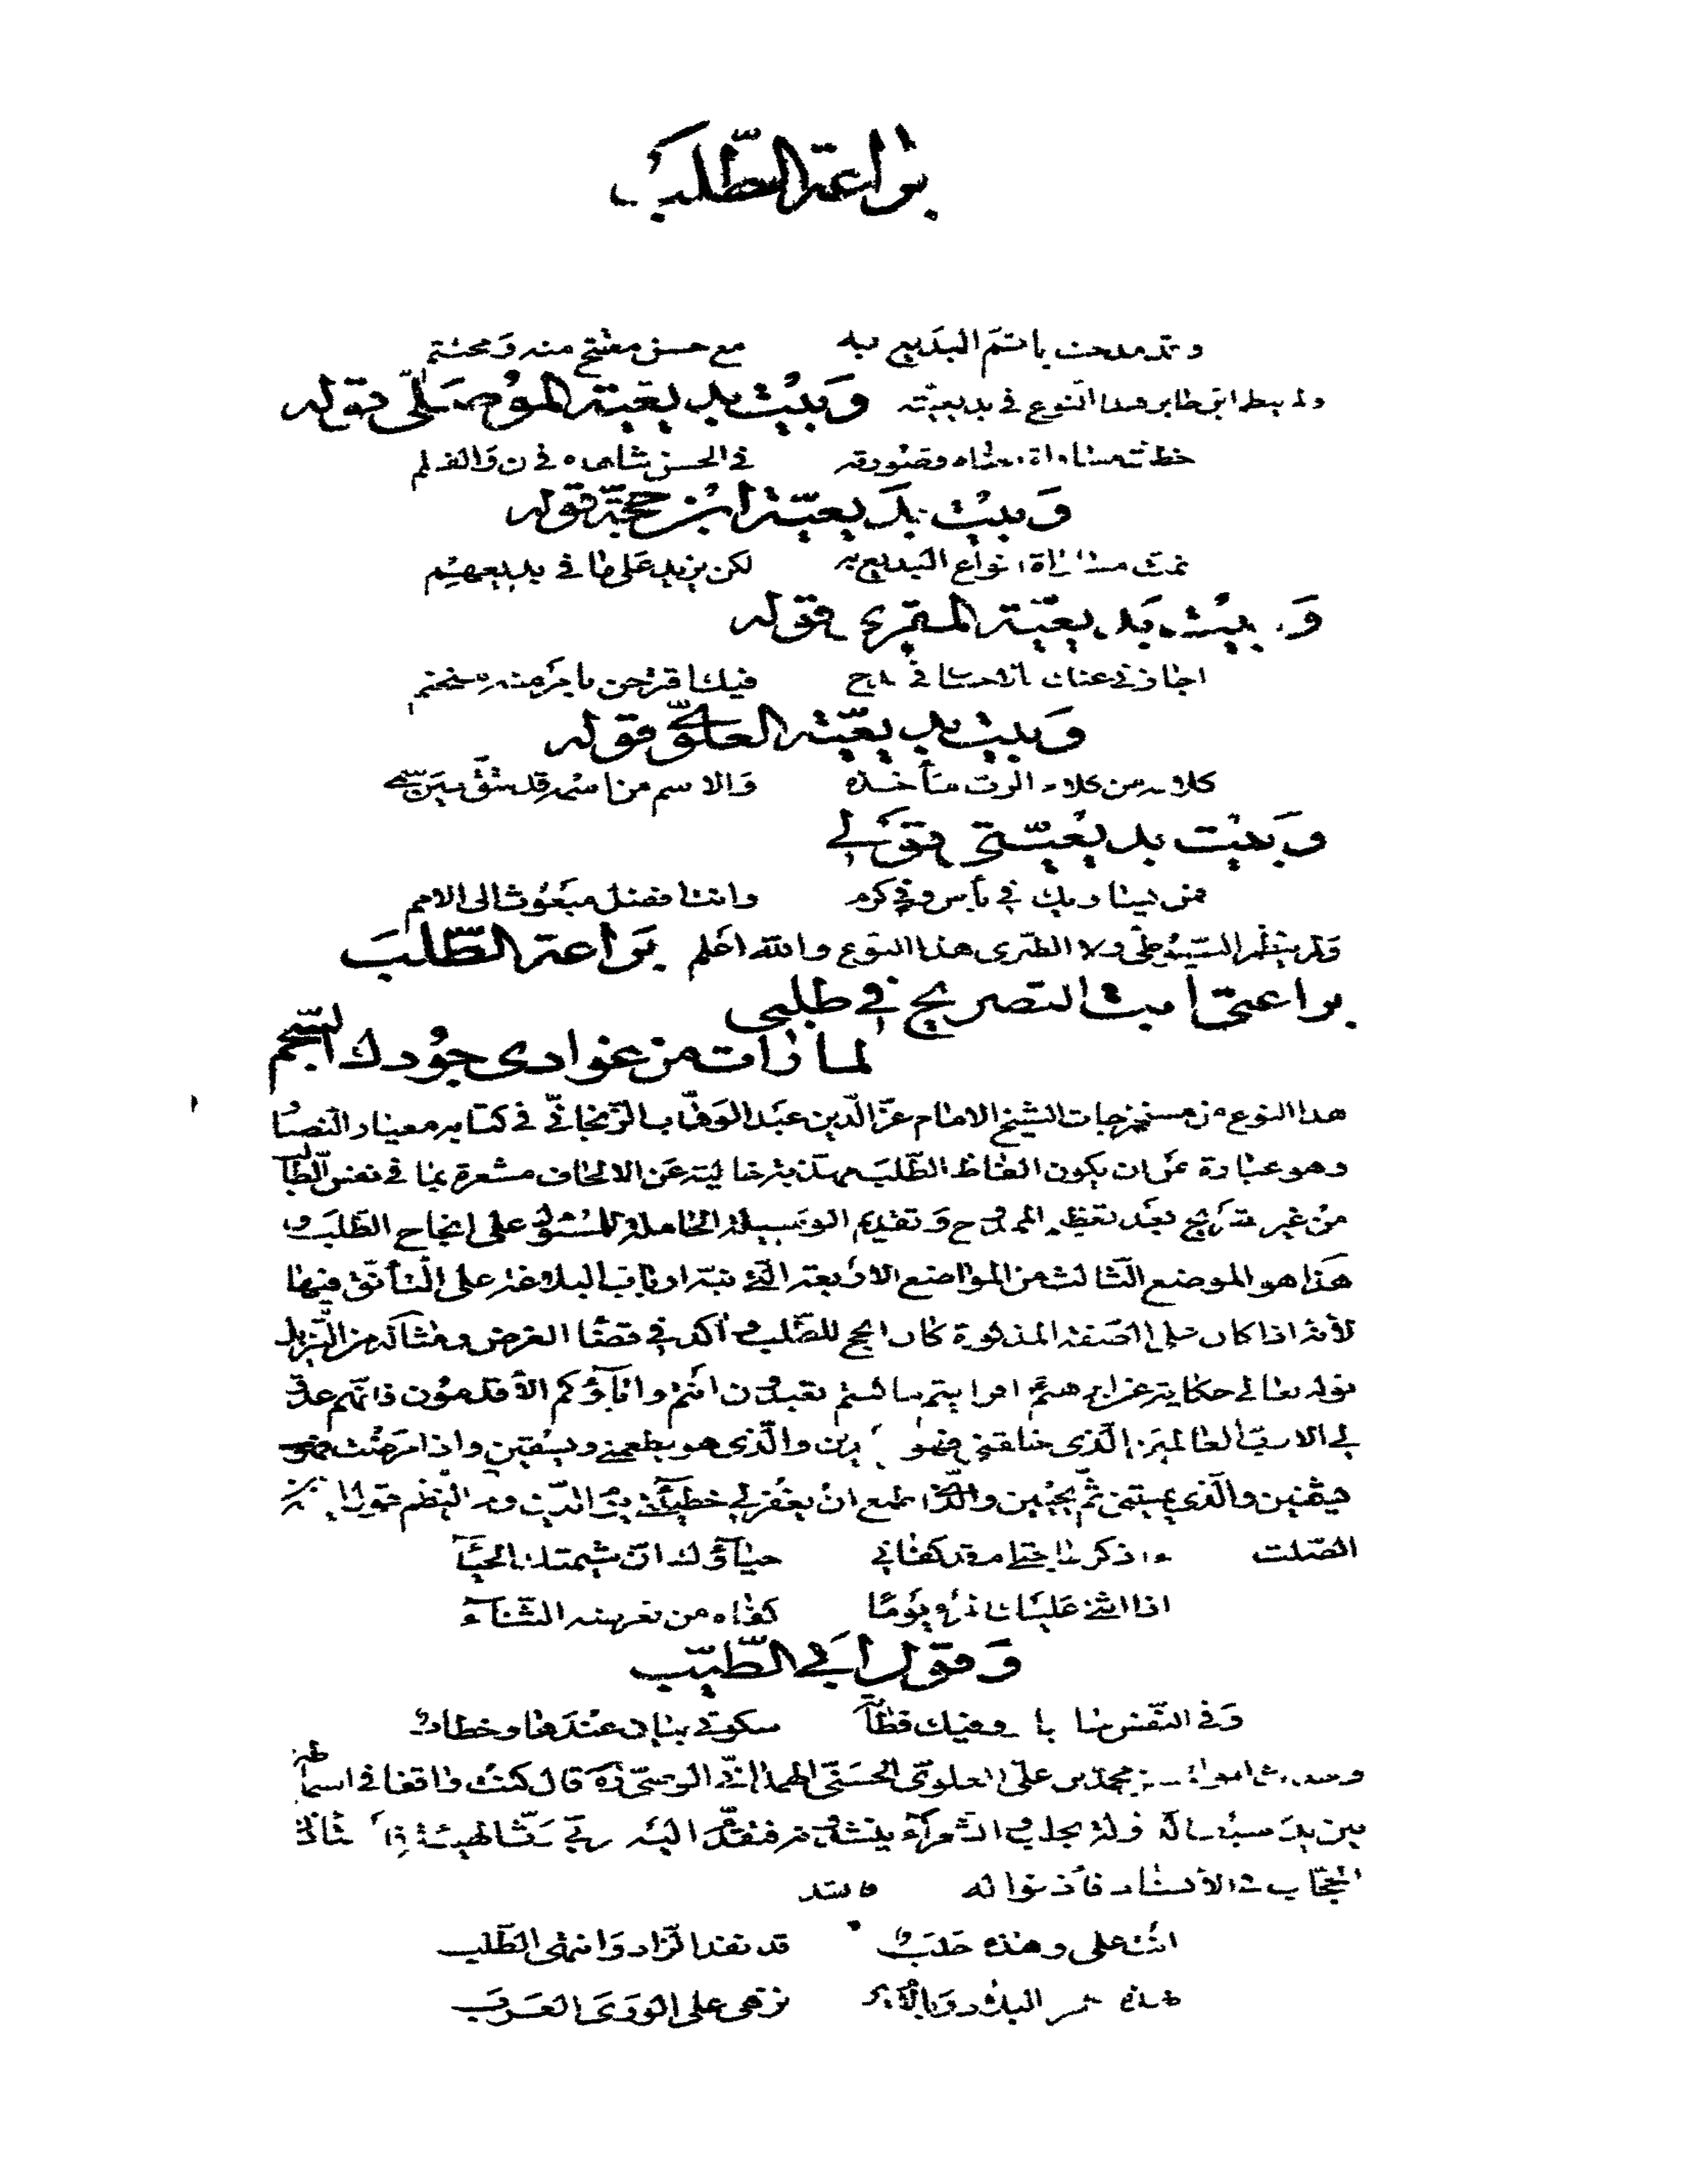 براعة الطلب
وقد مدحت بما تم البديع به مع حسن مفتتح منه ومختتم
ولم ينظم ابن جابر هذا النوع في بديعيته وبيت بديعية الموصلي قوله
في الحسن شاهده في ن والقلم
وبيت بديعية ابن حجة قوله
تمت مساواة انواع البديع به لكن يزيد على ما في بديعهم
وبيت بديعية المقري فقوله
وبيت بديعية العلوي فقوله
وبيت بديعيتي فقولي
فمن يساويك في بأس وفي كرم وانت افضل مبعوث الى الامم
ولم ينظم السيوطي ولا الطبري هذا النوع والله اعلم براعة الطلب
براعتي ابت التصريح في طلبي
لما رات من غوادي جودك السجم
هذا النوع من مستخرجات الشيخ الامام عز الدين عبد الوهاب الزنجاني في كتابه معيار النصا
وهو عبارة عن ان يكون الفاظ الطلب مهذبة خالية عن الالحاف مشعرة بما في نفس الطا
من غير تصريح بعد تعظيم الممدوح وتقديم الوسيلة الحاملة للمسئول على انجاح الطلب و
هذا هو الموضع الثالث من المواضع الاربعة التي نبه ارباب البلاغة على التأنق فيها
لأنه اذا كان على الصفة المذكورة كان انجح للطلب وآكد في قضا الغرض ومثاله من التنزيل
قوله تعالى حكاية عن ابرهيم افرايتم ما كنتم تعبدون انتم وآباؤكم الأقدمون فانهم عدو
لي الا رب العالمين الذي خلقني فهو يهدين والذي هو يطعمني ويسقين واذا مرضت فهو
يشفين والذي يميتني ثم يحيين والذي اطمع ان يغفر لي خطيئتي يوم الدين ومن النظم قول ابن
الصلت ءاذكر حاجتي ام قد كفاني حياؤك ان شيمتك الحيآ
اذا اثنى عليك المرء يوما كفاه من تعرضه الثنآء
وقول أبي الطيب
وفي النفس حاجات وفيك فطانة سكوتي بيان عندها وخطاب
محمد بن علي العلوي الحسني الهمداني الوصي قال كنت واقفا في السما
بين يدي سيف الدولة بحلب والشعرآء ينشدونه فتقدم اليه رث الهيئة
الحجاب في الانشاد فأذنوا له فانشد
انت علي وهذه حلب قد نفد الزاد وانتهى الطلب
بهذه تفخر البلاد وبالأمير تزهى على الورى العرب